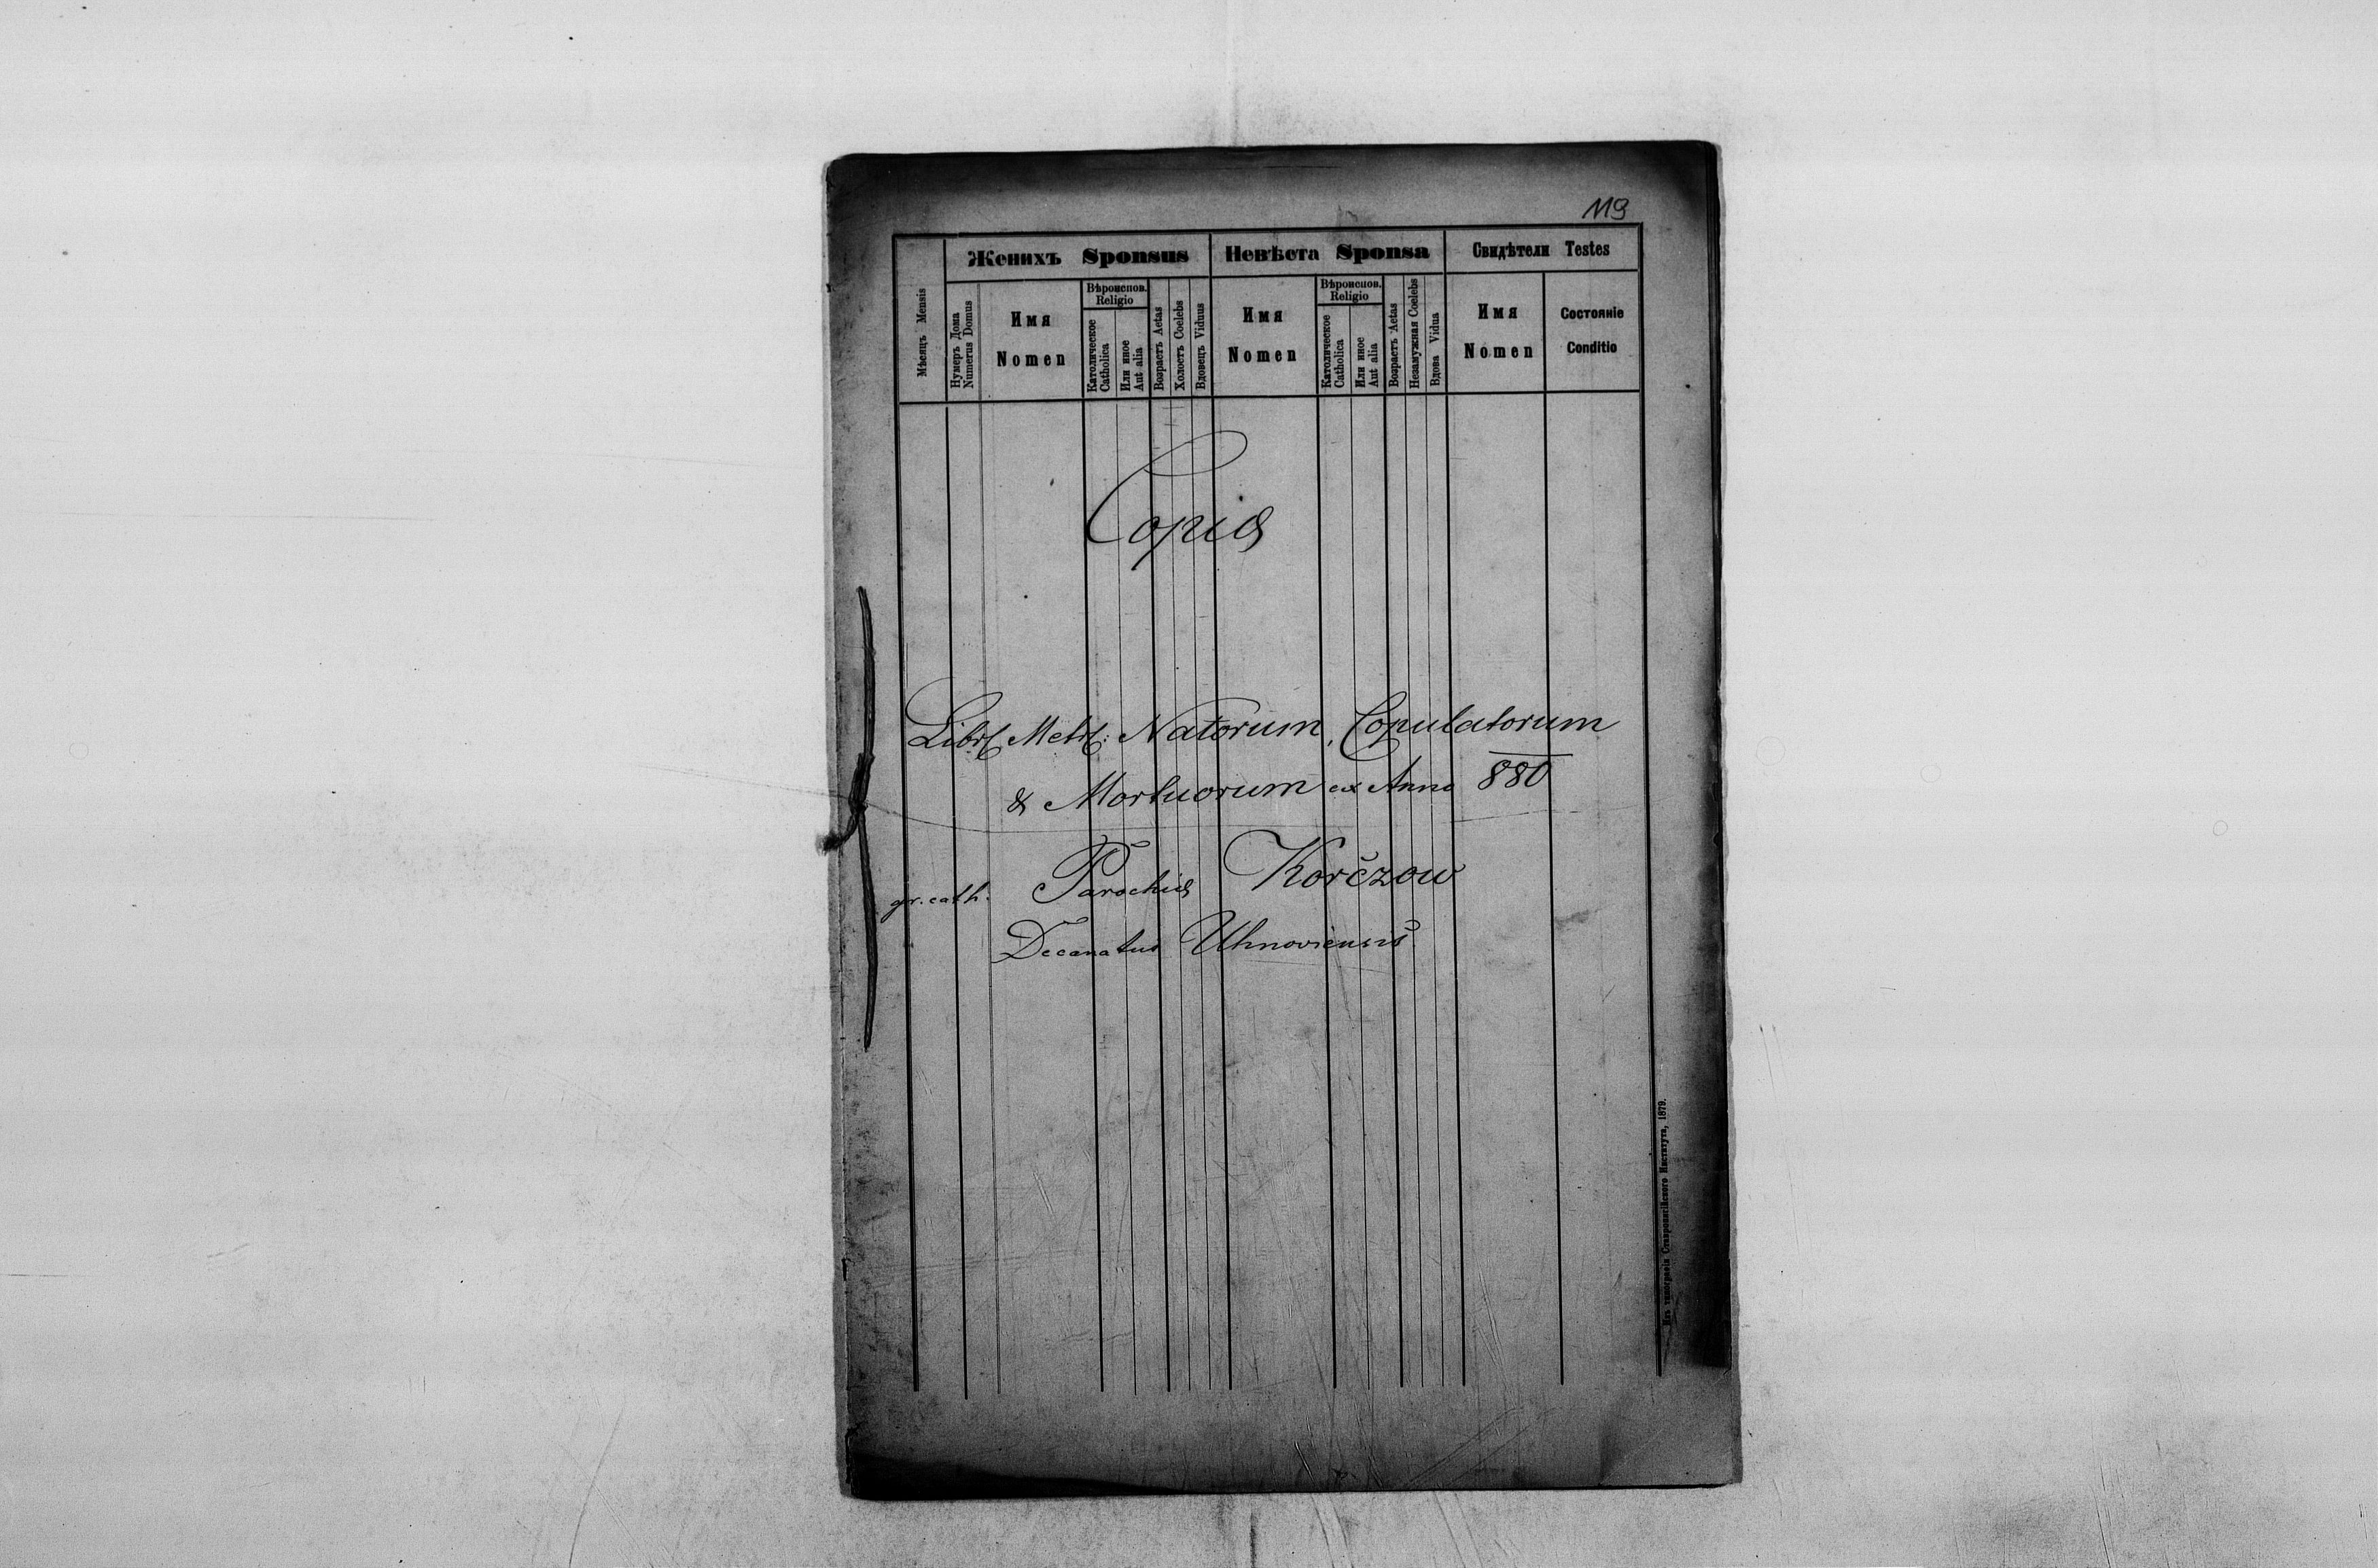 119
Женихъ Sponsus Невѣста Sponsa Свидѣтели Testes
Мѣсяцъ Mensis
Нумеръ Дома
Numerus Domus
Имя
Nomen
Вѣроиспов.
Religio
Католическое
Catholica
Или иное
Aut alia
Возрастъ Aetas
Холостъ Coelebs
Вдовецъ Viduus
Имя
Nomen
Вѣроиспов.
Religio
Католическое
Catholica
Или иное
Aut alia
Возрастъ Aetas
Незамужная Coelebs
Вдова Vidua
Имя
Nomen
Состояніе
Conditio
Copia
Libri Metr: Natorum, Copulatorum
& Mortuorum ex Anno 880
gr. cath. Parochia Korczow
Decanatus Uhnoviensis
Изъ типографіи Ставропигійского Института, 1879.